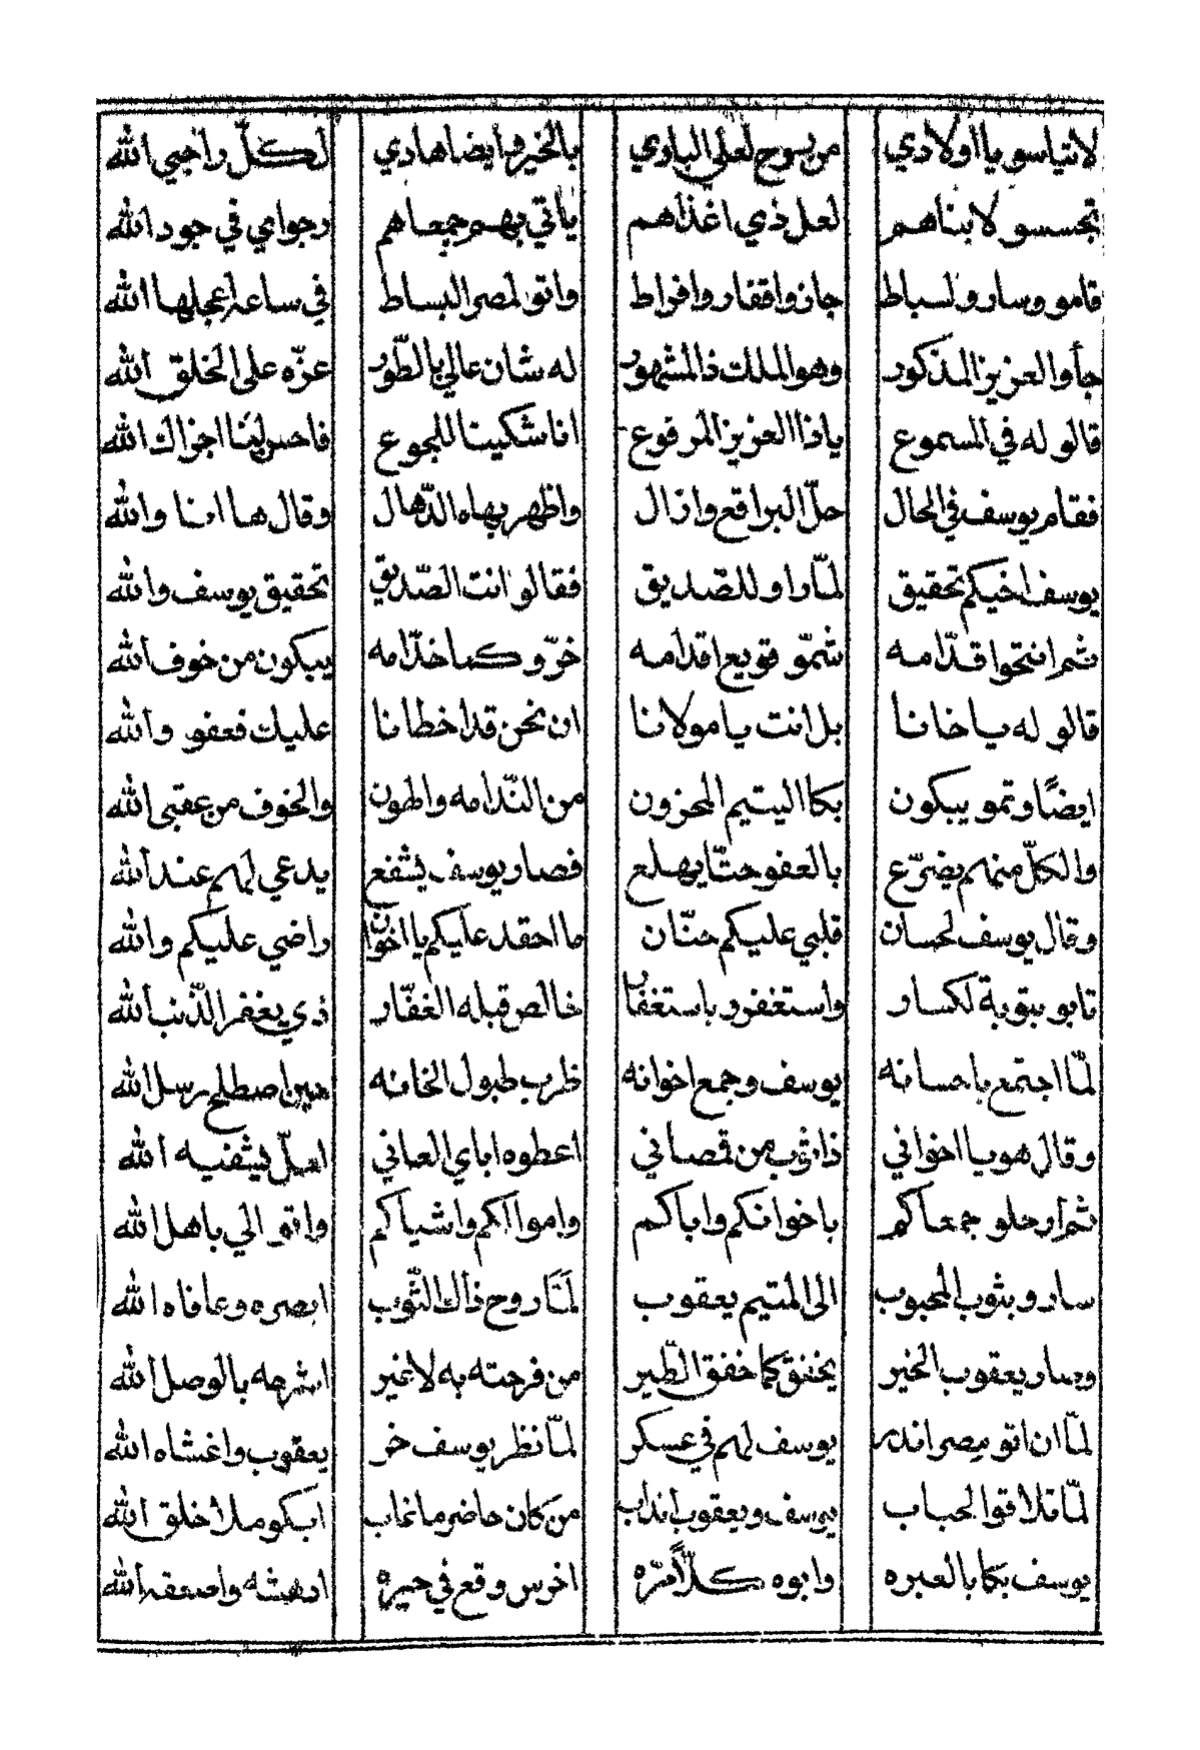 لاتياسو يا اولادي من يسوح لعلي الباوي بالخير وايضا هادي لكلّ راجي الله
تجسسو لابناهم لعل ذي اغذاهم ياتي بهم جمعاهم رجواي في جود الله
قامو وسارو لسباط جازوا قفار وافراط واتو لمصر البساط في ساعه اعجلها الله
جأوا العزيز المذكور وهو الملك ذا المشهور له شان عالي بالطّور عزّه على الخلق الله
قالو له في المسموع ياذا العزيز المرفوع اناشكينا للجوع فاحسن لينا اجزاك الله
فقام يوسف في الحال حلّ البراقع وازال واظهر بهاه الدّهال وقال ها انا والله
يوسف اخيكم تحقيق لمّا راو للصّديق فقالو انت الصّديق تحقيق يوسف والله
ثم انتحوا قدّامه شمّو قويع اقدامه خرّو كما خدّامه يبكون من خوف الله
قالو له ياخانا بل انت يا مولانا ان نحن قد اخطانا عليك فعفو والله
ايضًا وتمو يبكون بكا اليتيم المحزون من النّدامه والهون والخوف من عقبى الله
والكلّ منهم يضرّع بالعفو حتّا يهلع فصار يوسف يشفع يدعي لهم عند الله
وقال يوسف لحسان قلبي عليكم حنّان ما احقد عليكم يا اخوان راضي عليكم والله
تابو بتوبة لكسار واستغفرو باستغفار خالص قبله الغفّار ذي يغفر الذّنب الله
لمّا اجتمع باحسانه يوسف وجمع اخوانه ظرب طبول الخانه حين اصطلح رسل الله
وقال هو يا اخواني ذا ثوب من قمصاني اعطوه اباي العاني لعلّ يشفيه الله
ثم ارحلو جمعاكم باخوانكم واباكم واموالكم واشياكم واتو الي باهل الله
سارو بثوب المحبوب الى المتيم يعقوب لمّا روح ذاك الثّوب ابصره وعافاه الله
وصار يعقوب الخير يخفق كما خفق الطّير من فرحته به لاغير اشرحه بالوصل الله
لمّا ان اتو مصر اندر يوسف لهم في عسكر لمّا نظر يوسف خر يعقوب واغشاه الله
لمّا تلاقوا لحباب يوسف ويعقوب انداب من كان حاضر ما غاب ابكو ملا خلق الله
يوسف بكا بالعبره وابوه كلّاً مرّه اخوس وقع في حيره ادهشه واصعقه الله